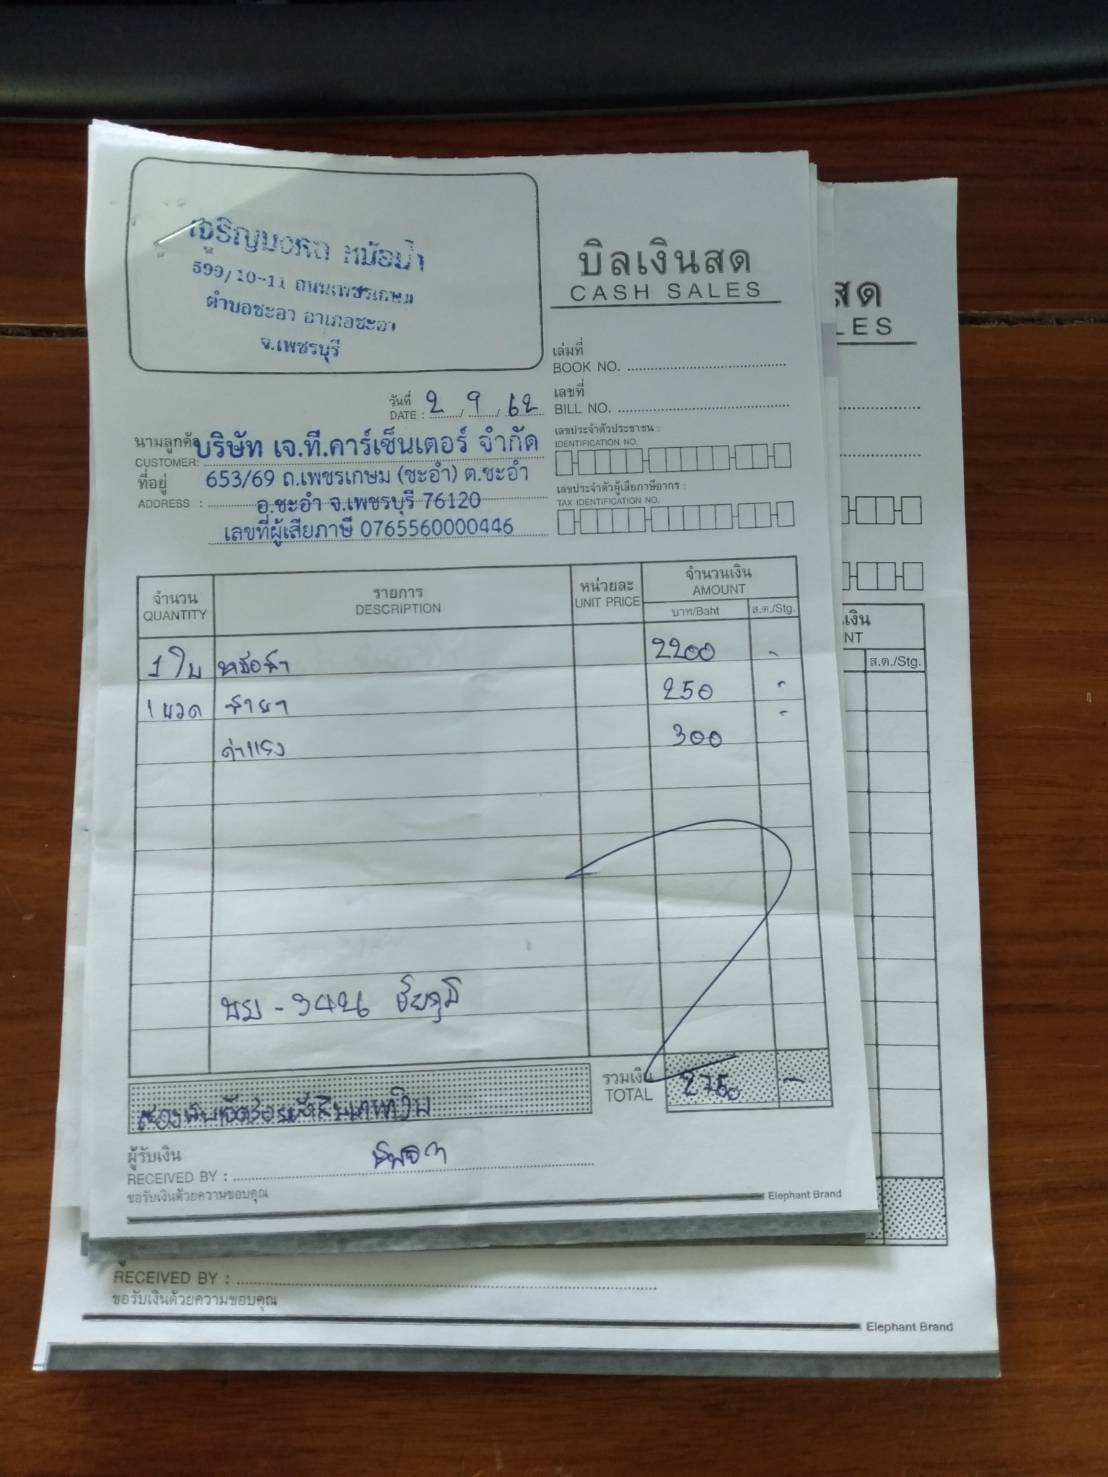 เจริญมงคล หม้อน้ำ
599/10-11 ถนนเพชรเกษม
ตำบลชะอำ อำเภอชะอำ
จ.เพชรบุรี
บิลเงินสด
CASH SALES
เล่มที่
BOOK NO.
เลขที่
BILL NO.
วันที่
DATE : 2 / 9 / 62
เลขประจำตัวประชาชน :
IDENTIFICATION NO.
เลขประจำตัวผู้เสียภาษีอากร :
TAX IDENTIFICATION NO.
นามลูกค้า บริษัท เจ.ที.คาร์เซ็นเตอร์ จำกัด
CUSTOMER:
ที่อยู่ 653/69 ถ.เพชรเกษม (ชะอำ) ต.ชะอำ
ADDRESS : อ.ชะอำ จ.เพชรบุรี 76120
เลขที่ผู้เสียภาษี 0765560000446
จำนวน รายการ หน่วยละ จำนวนเงิน
QUANTITY DESCRIPTION UNIT PRICE AMOUNT
บาท/Baht ส.ต./Stg.
1 ใบ หม้อน้ำ 2200 -
1 ขวด น้ำยา 250 -
ค่าแรง 300 -
3426 ชัยภูมิ
รวมเงิน
TOTAL 2750 -
สองพันเจ็ดร้อยห้าสิบบาทถ้วน
ผู้รับเงิน
RECEIVED BY :
ขอรับเงินด้วยความขอบคุณ
Elephant Brand
สด
LES
เงิน
NT
ส.ต./Stg.
RECEIVED BY :
ขอรับเงินด้วยความขอบคุณ
Elephant Brand